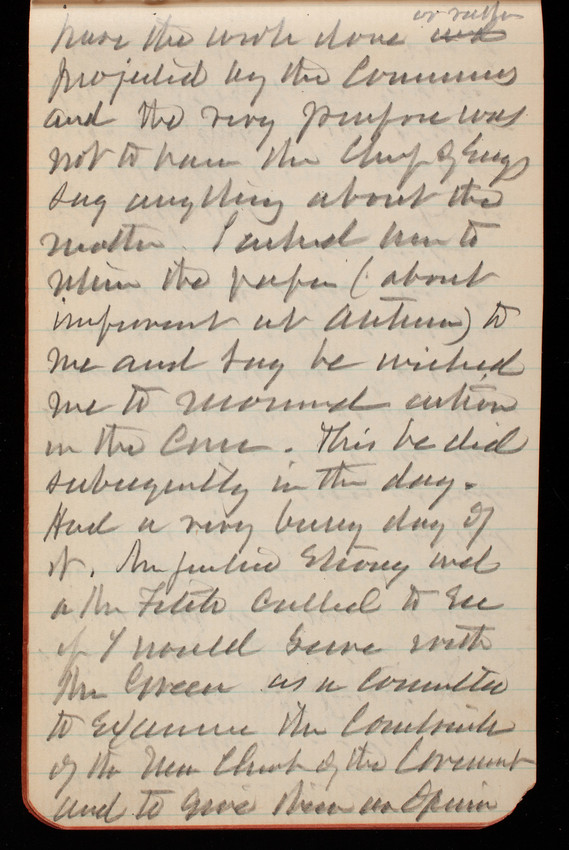 or rather
have the work done and
projected by the Commrs
and the very purpose was
not to have the Chf of Engs
say anything about the
matter. I asked him to
return the paper (about
improvemt at Astoria) to
me and say he wished
me to recommend action
in the Case. This he did
subsequently in the day.
Had a very busy day of
it. Justice Strong and
a Mr called to see
if I would serve with
Mr Green as a Committee
to Examine the Contracts
of the New Church of the Covenant
and to give them an Opinion